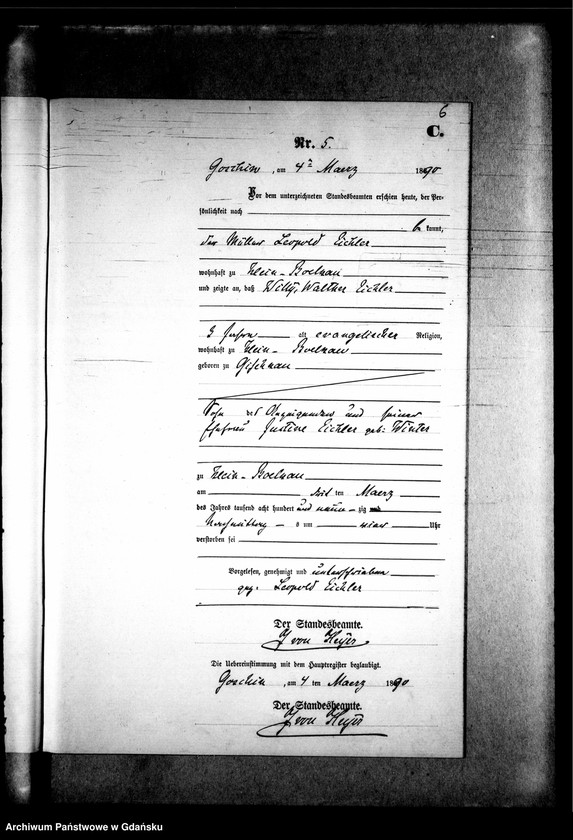 6
C.
Nr. 5.
Goschin, am 4 ten Maerz 1890
Vor dem unterzeichneten Standesbeamten erschien heute, der Per-
sönlichkeit nach
be kannt,
der Müller Leopold Eichler
wohnhaft zu Klein-Boelkau
und zeigte an, daß Willy, Walther Eichler
alt evangelischer Religion,
wohnhaft zu Klein-Boelkau
geboren zu Gischkau
Sohn des Anzeigenden und seiner
Ehefrau Justine Eichler geb: Winter
zu Klein-Boelkau
am ten Maerz
des Jahres tausend acht hundert und neun-zig
Nachmittag s um vier Uhr
verstorben sei
Vorgelesen, genehmigt und unterschrieben
gez. Leopold Eichler
Der Standesbeamte.
von Heyer
Die Uebereinstimmung mit dem Hauptregister beglaubigt.
Goschin, am 4 ten Maerz 1890
Der Standesbeamte.
von Heyer
Archiwum Państwowe w Gdańsku